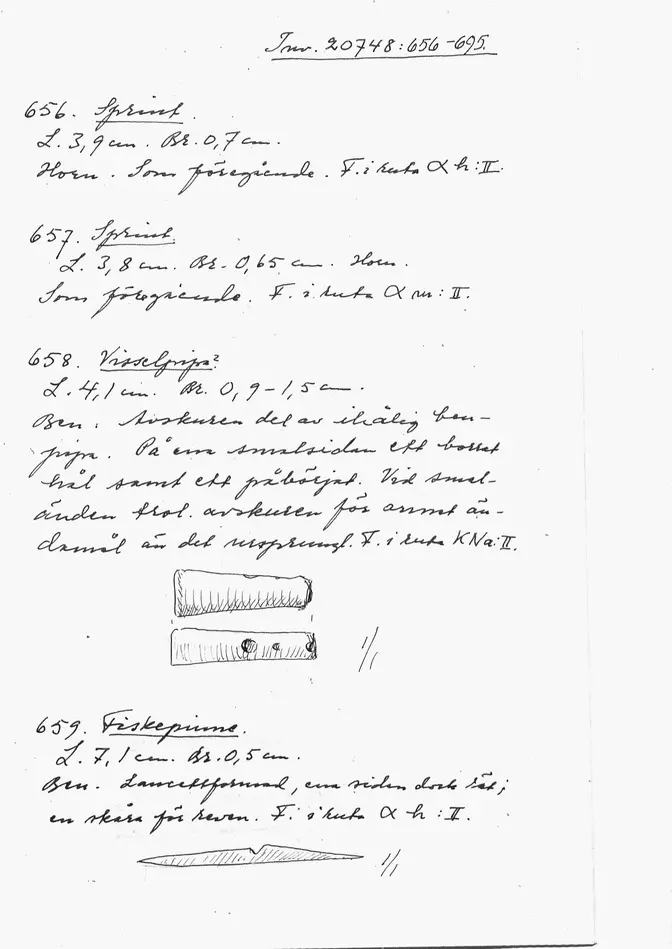 Inv. 20748:656-695.
656. Sprint.
L. 3,9 cm. Br. 0,7 cm.
Horn. Som föregående. F. i ruta α h:II.
657. Sprint.
L. 3,8 cm. Br. 0,65 cm. Horn.
Som föregående. F. i ruta α m:II.
658. Visselpipa?
L. 4,1 cm. Br. 0,9-1,5 cm.
Ben. Avskuren del av ihålig ben-
pipa. På ena smalsidan ett borrat
hål samt ett påbörjat. Vid smal-
änden trol. avskuren för annat än-
damål än det ursprungl. F. i ruta KNa:II.
1/1
659. Fiskepinne.
L. 7,1 cm. Br. 0,5 cm.
Ben. Lancettformad, ena sidan dock rät;
en skåra för reven. F. i ruta α h:II.
1/1